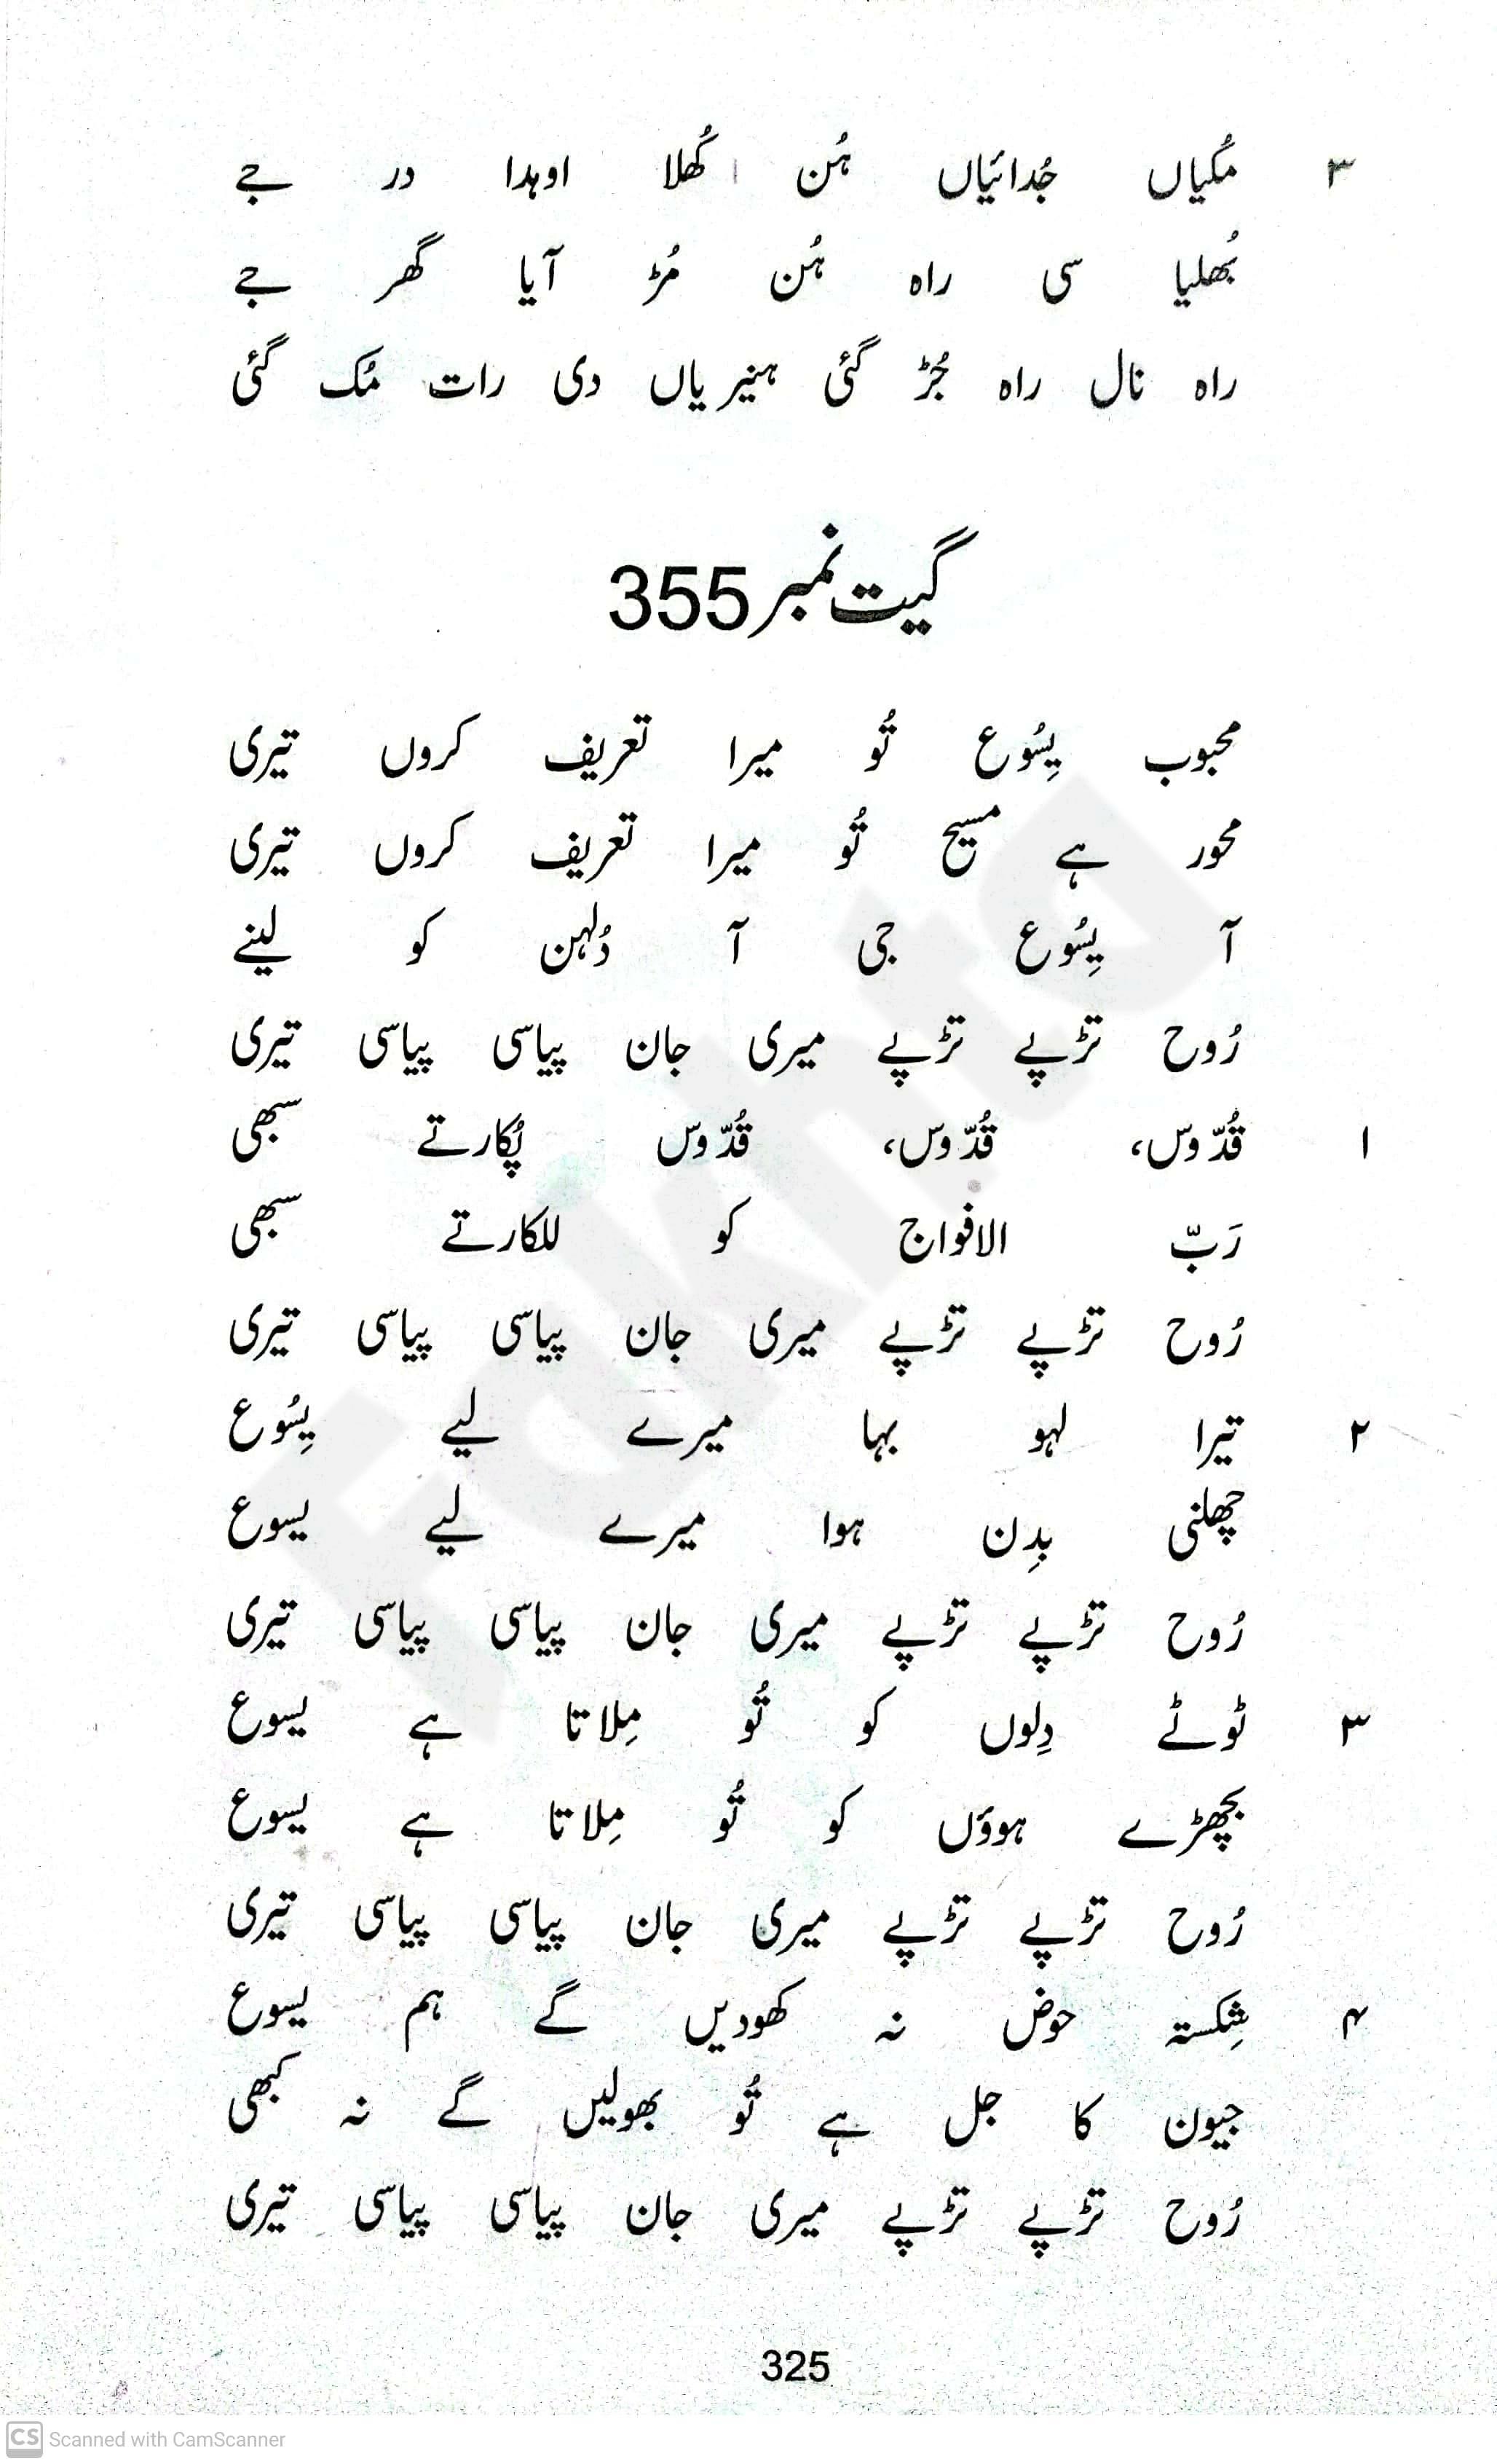 ۳ مُکیاں جُدائیاں ہُن کُھلا اوہدا در جے
بُھلیا سی راہ ہُن مُڑ آیا گھر جے
راہ نال راہ جُڑ گئی ہنیریاں دی رات مُک گئی
گیت نمبر 355
محبوب یِسُوع تُو میرا تعریف کروں تیری
محور ہے مسیح تُو میرا تعریف کروں تیری
آ یِسُوع جی آ دُلہن کو لینے
رُوح تڑپے تڑپے میری جان پیاسی پیاسی تیری
۱ قُدّوس، قُدّوس، قُدّوس پُکارتے سبھی
رَبّ الافواج کو للکارتے سبھی
رُوح تڑپے تڑپے میری جان پیاسی پیاسی تیری
۲ تیرا لہو بہا میرے لیے یِسُوع
چھلنی بدِن ہوا میرے لیے یسوع
رُوح تڑپے تڑپے میری جان پیاسی پیاسی تیری
۳ ٹوٹے دِلوں کو تُو مِلاتا ہے یسوع
بچھڑے ہوؤں کو تُو مِلاتا ہے یسوع
رُوح تڑپے تڑپے میری جان پیاسی پیاسی تیری
۴ شِکستہ حوض نہ کھودیں گے ہم یسوع
جیون کا جل ہے تُو بھولیں گے نہ کبھی
رُوح تڑپے تڑپے میری جان پیاسی پیاسی تیری
325
CS Scanned with CamScanner